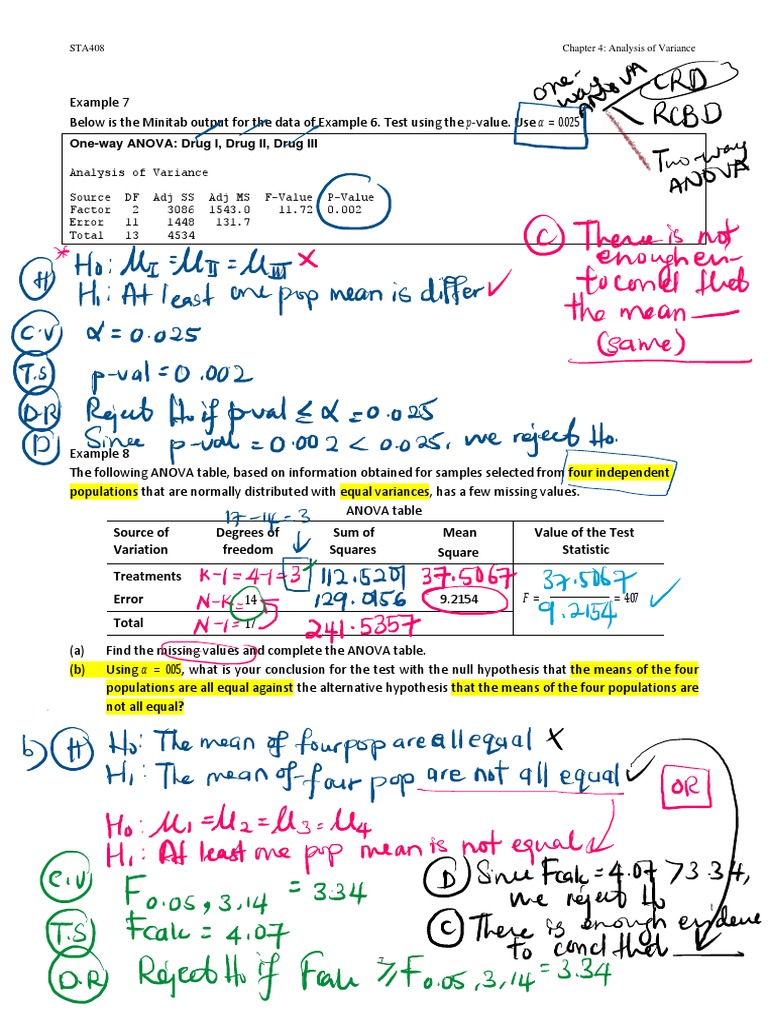 STA408 Chapter 4: Analysis of Variance
one-way ANOVA
CRD
RCBD
Two-way ANOVA
Example 7
Below is the Minitab output for the data of Example 6. Test using the p-value. Use α = 0.025
One-way ANOVA: Drug I, Drug II, Drug III
Analysis of Variance
Source DF Adj SS Adj MS F-Value P-Value
Factor 2 3086 1543.0 11.72 0.002
Error 11 1448 131.7
Total 13 4534
(C) There is not
enough en-
to concl that
the mean ___
(same)
* (H) H0: μI = μII = μIII ×
H1: At least one pop mean is differ ✓
(C.V) α = 0.025
(T.S) p-val = 0.002
(D.R) Reject H0 if p-val ≤ α = 0.025
(D) Since p-val = 0.002 < 0.025, we reject H0.
Example 8
The following ANOVA table, based on information obtained for samples selected from four independent
populations that are normally distributed with equal variances, has a few missing values.
17-14=3
ANOVA table
Source of Variation Degrees of freedom Sum of Squares Mean Square Value of the Test Statistic
Treatments K-1=4-1=3 112.5201 37.5067
Error N-K= 14 129.0156 9.2154 F = 37.5067 / 9.2154 = 407 ✓
Total N-1=17 241.5357
(a) Find the missing values and complete the ANOVA table.
(b) Using α = 005, what is your conclusion for the test with the null hypothesis that the means of the four
populations are all equal against the alternative hypothesis that the means of the four populations are
not all equal?
b) (H) H0: The mean of four pop are all equal ×
H1: The mean of four pop are not all equal ✓
OR
H0: μ1 = μ2 = μ3 = μ4
H1: At least one pop mean is not equal
(C.V) F0.05, 3, 14 = 3.34
(T.S) Fcalc = 4.07
(D.R) Reject H0 if Fcalc ≥ F0.05, 3, 14 = 3.34
(D) Since Fcalc = 4.07 > 3.34,
we reject H0
(C) There is enough evidence
to concl that ___